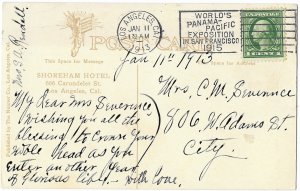 LOS ANGELES, CAL.
JAN 11
1 30 AM
1913
WORLD'S
PANAMA-
PACIFIC
EXPOSITION
IN SAN FRANCISCO
1915
POST CARD
This Space for Message
This Space for Address
SHOREHAM HOTEL
666 Carondelet St.
Los Angeles, Cal.
Jan 11th 1913
My Dear Mrs Severance
Wishing you all the
blessing to Crown your
noble Head as you
Enter an other year
of Glorious Life - with love.
Mrs. C. M. Severance
806 W. Adams St.
City.